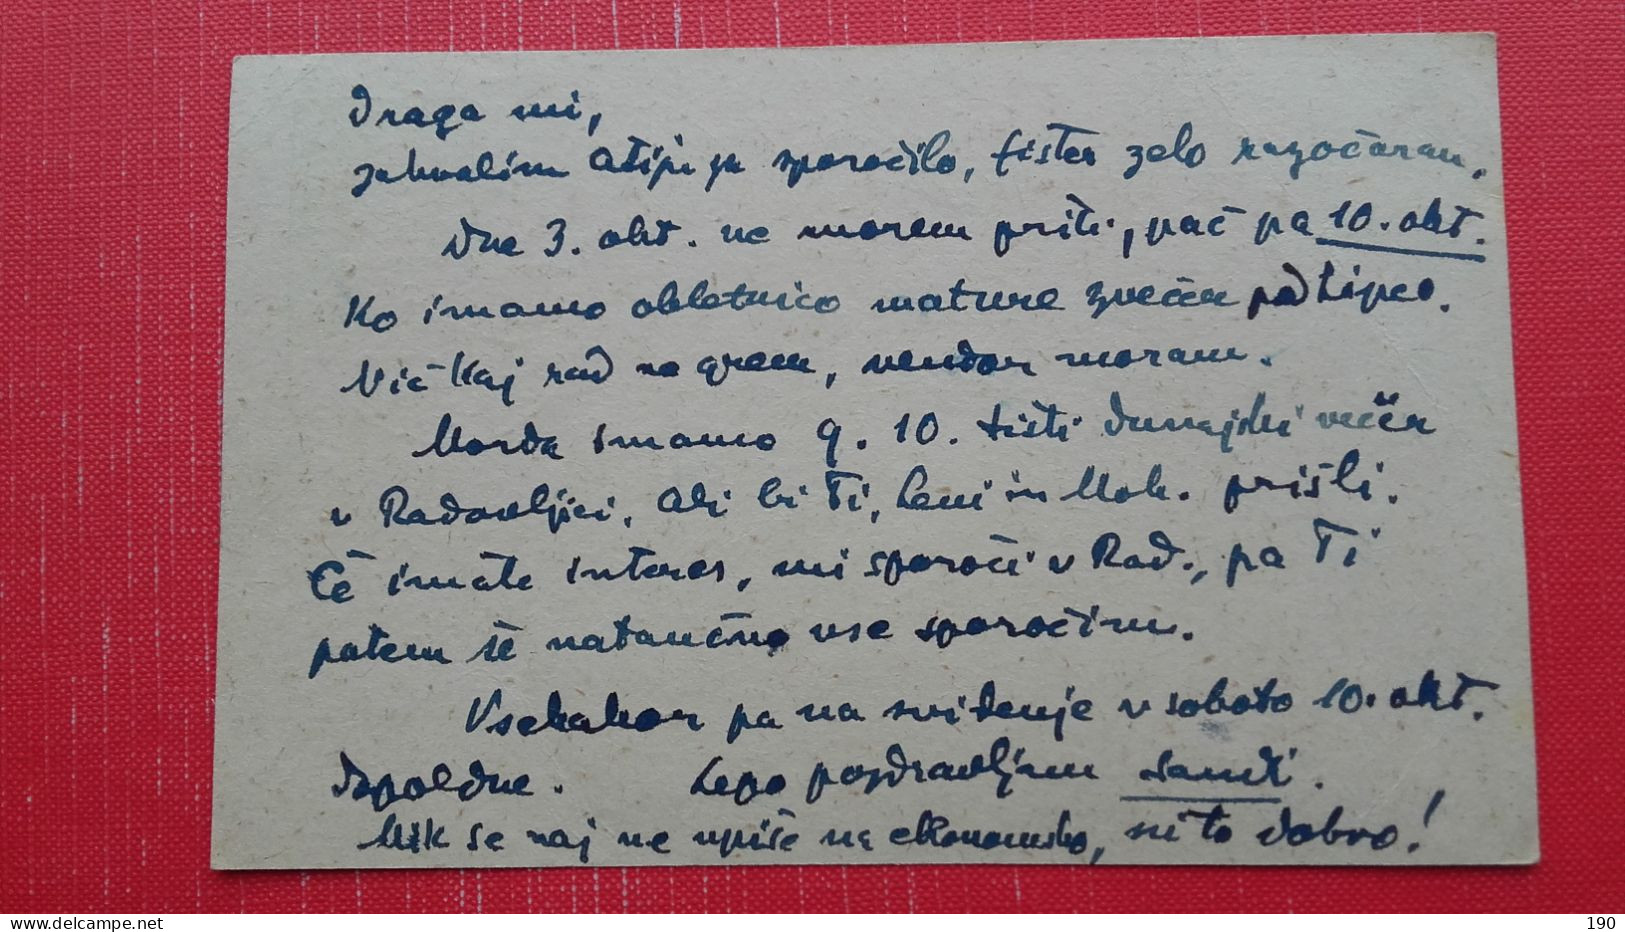 Draga mi,
zahvalim Atiju za sporočilo, zelo razočaran,
Dne 3. okt. ne morem priti, pač pa 10. okt.
Ko imamo obletnico mature zvečer pod Lipco.
Nič kaj rad ne grem, vendar moram.
Morda imamo 9. 10. tisti dunajski večer
v Radovljici. Ali bi Ti, Leni in Moh. prišli.
Če imate interes, mi sporoči v Rad., pa Ti
potem še natančno vse sporočim.
Vsekakor pa na svidenje v soboto 10. okt.
dopoldne. Lepo pozdravljam Sandi.
Mik se naj ne vpiše na ekonomsko, ni to dobro!
delcampe.net
190